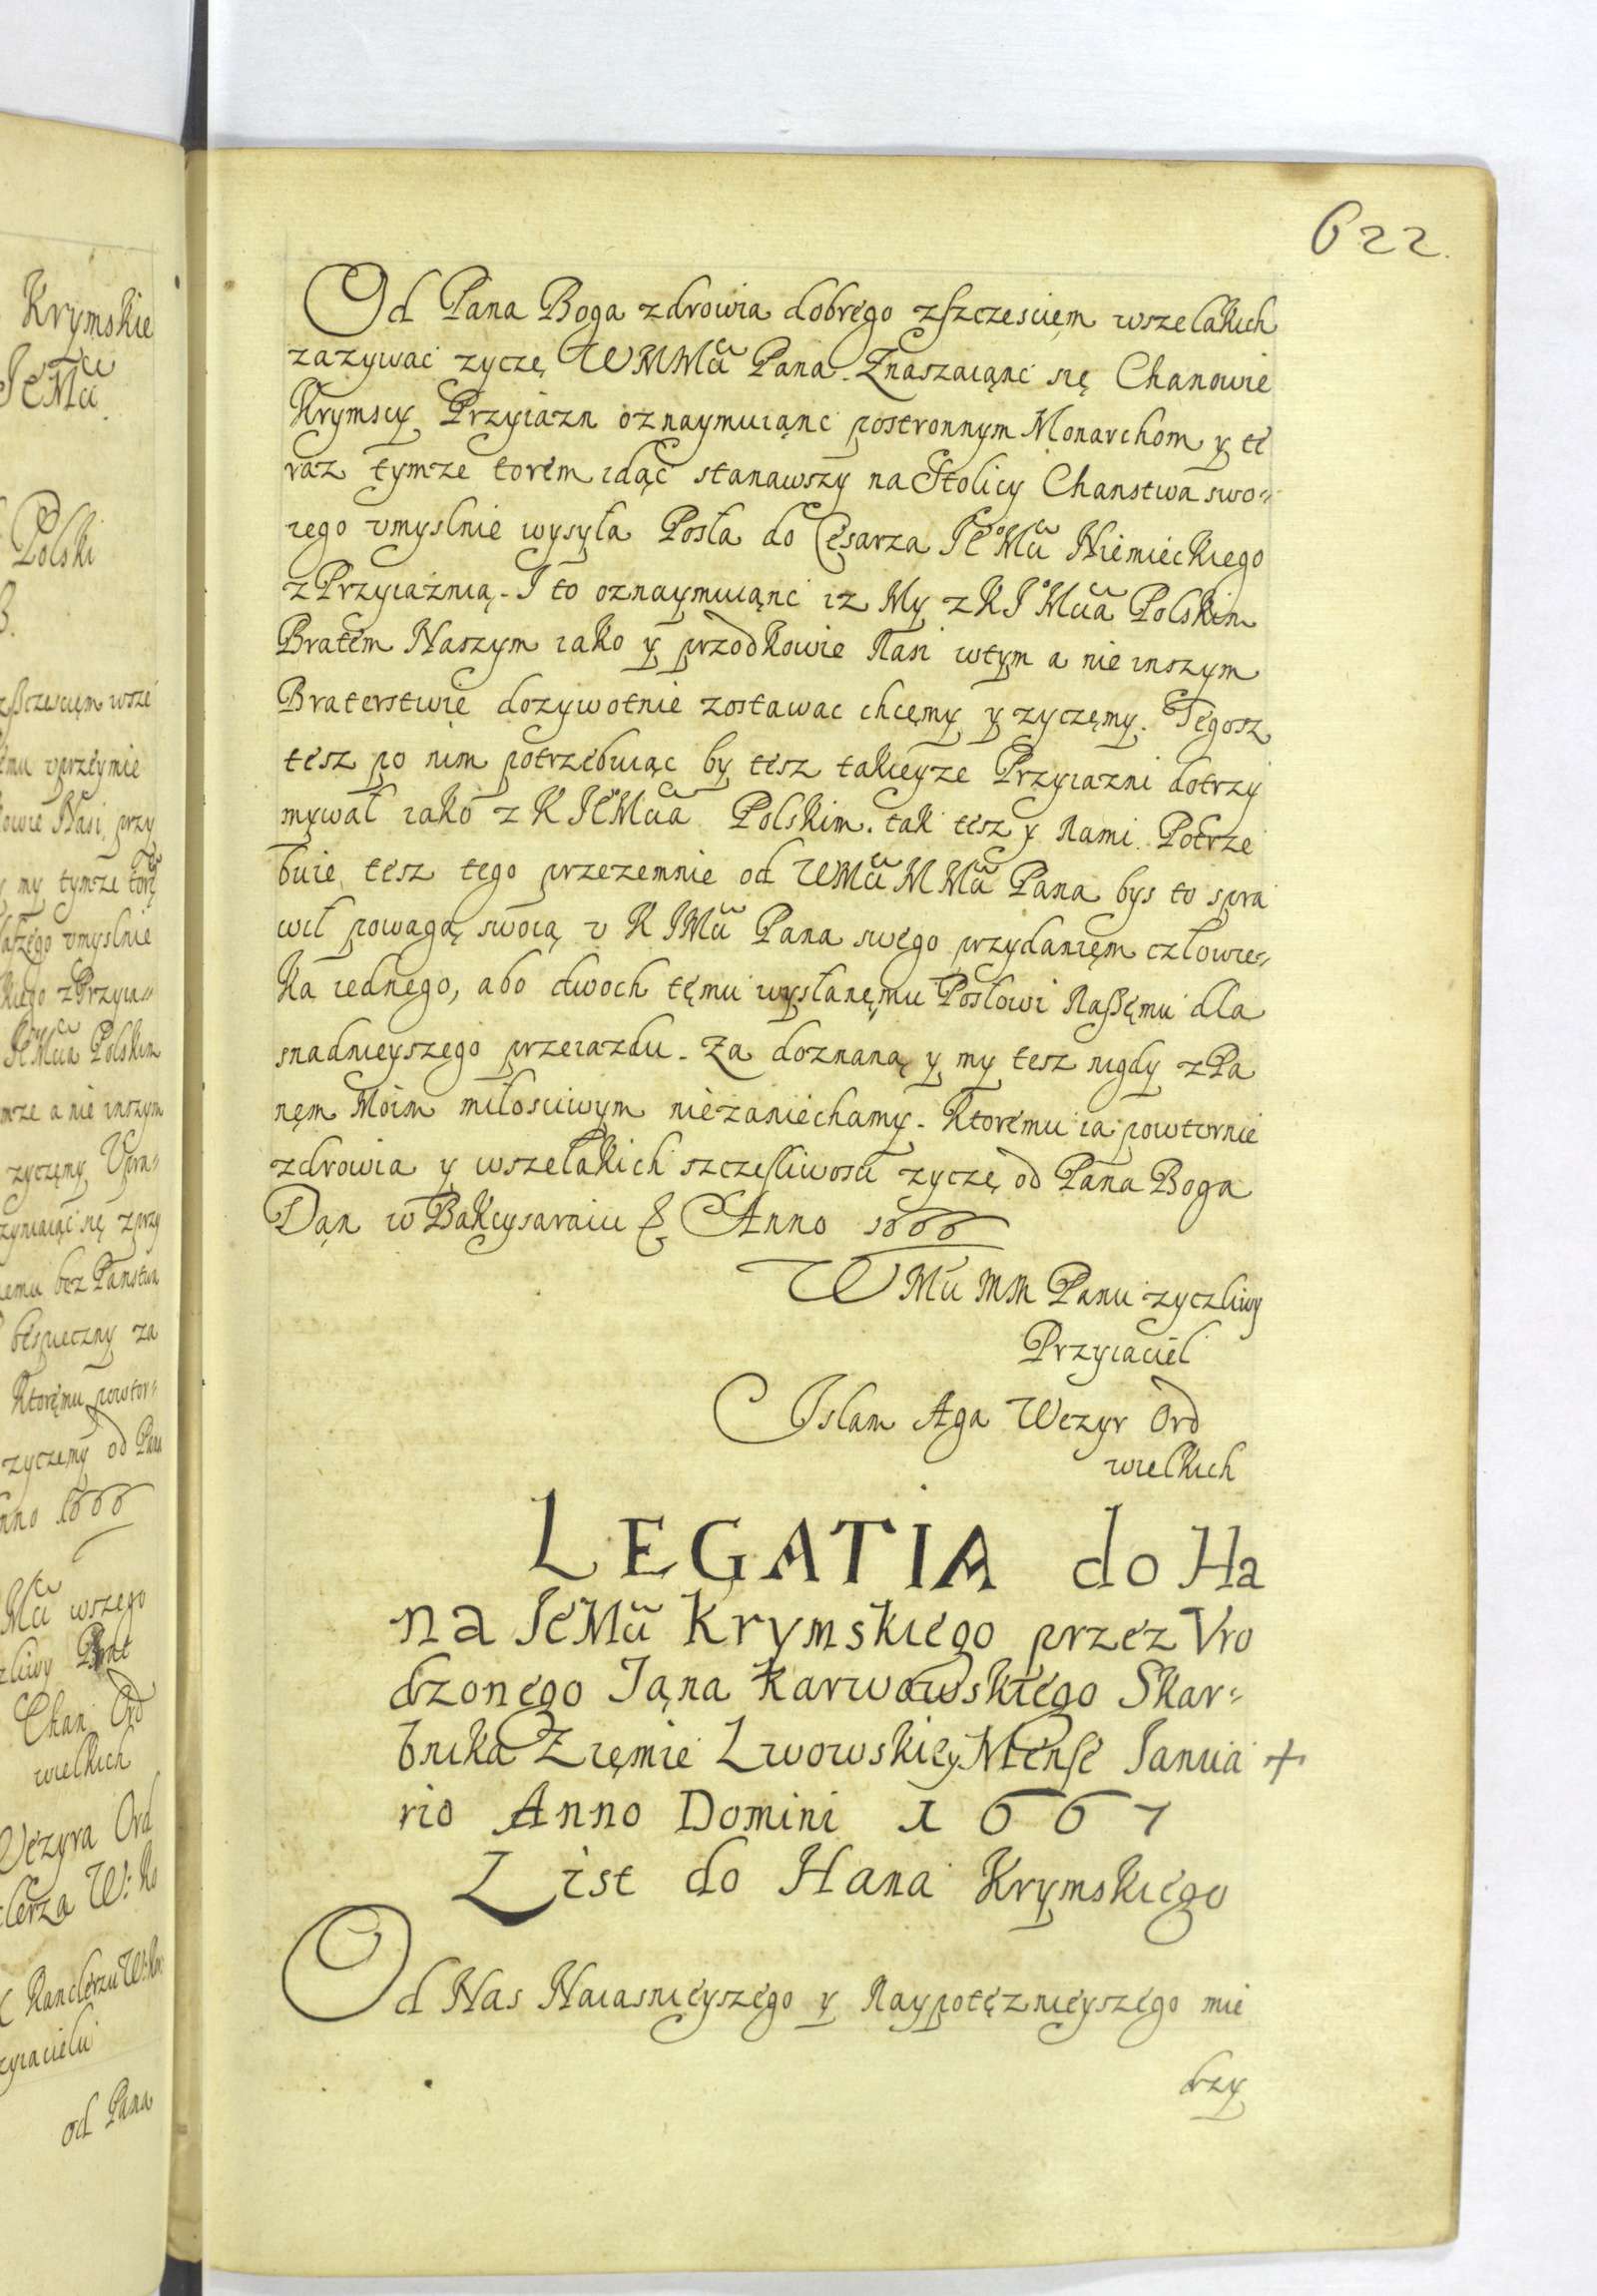 622.
Od Pana Boga zdrowia dobrego zszczesciem wszelakich
zazywac zyczę WMMci Pana. Znaszaiąnc się Chanowie
Krymscy Przyiazn oznaymuiąnc postronnym Monarchom y te
raz tymze torem idąc stanawszy na Stolicy Chanstwa swo=
iego vmyslnie wysyła Posła do Cesarza JeoMci Niemieckiego
z Przyiaznią. I to oznaymuiąnc iz My z KJoMcia Polskim
Bratem Naszym iako y przodkowie Nasi wtym a nie inszym
Braterstwie dozywotnie zostawac chcęmy y zyczęmy. Tegosz
tesz po nim potrzebuiąc by tesz takieyze Przyiazni dotrzy
mywał iako z K JeMcia Polskim. tak tesz y Nami. Potrze
buie tesz tego przezemnie od WMci MMci Pana bys to spra
wił powagą swoią v K JMci Pana swego przydanięm człowie=
ka iednego, abo dwoch tęmu wysłanęmu Posłowi Naszęmu dla
snadnieyszego przeiazdu. Za doznaną y my tesz nigdy z Pa
nęm Moim miłosciwym niezaniechamy. Ktoremu ia powturnie
zdrowia y wszelakich szczęsliwosci zyczę od Pana Boga
Dąn w Bakcysaraiu & Anno 1666
WMci MM Panu zyczliwy
Przyiaciel
Islam Aga Wezyr Ord
wielkich
LEGATIA do Ha
na JeMci Krymskiego przez Vro
dzonego Jąna Karwowskiego Skar=
bnika Zięmie Lwowskiey Mense Janua +
rio Anno Domini 1667
List do Hana Krymskiego
Od Nas Naiasnieyszego y Naypotęznieyszego mie
drzy